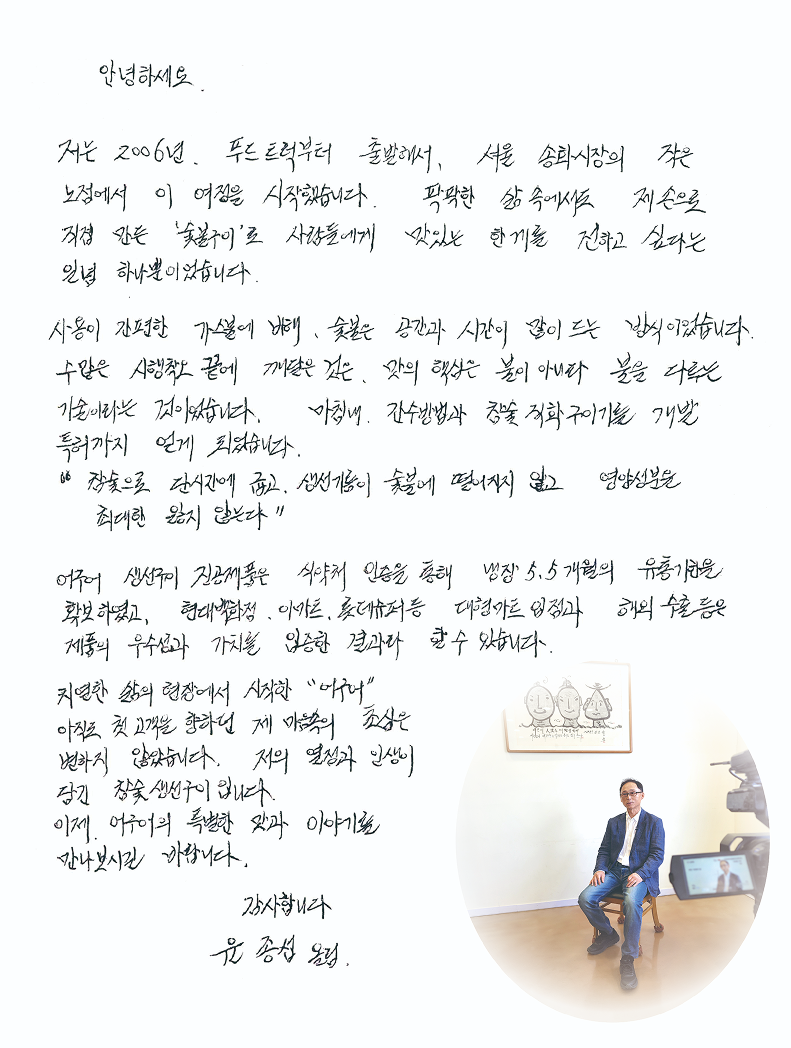 안녕하세요.
저는 2006년, 푸드트럭부터 출발해서, 서울 송화시장의 작은
노점에서 이 여정을 시작했습니다. 팍팍한 삶 속에서도 제 손으로
직접 만든 '숯불구이'로 사람들에게 맛있는 한끼를 전하고 싶다는
일념 하나뿐이었습니다.
사용이 간편한 가스불에 비해, 숯불은 공간과 시간이 많이 드는 방식이었습니다.
수많은 시행착오 끝에 깨달은 것은, 맛의 핵심은 불이 아니라 불을 다루는
기술이라는 것이었습니다. 마침내, 간수방법과 참숯 직화구이기를 개발
특허까지 얻게 되었습니다.
“ 참숯으로 단시간에 굽고, 생선기름이 숯불에 떨어지지 않고 영양성분을
최대한 잃지 않는다 ”
어구어 생선구이 진공제품은 식약처 인증을 통해 냉장 5.5개월의 유통기한을
확보하였고, 현대백화점, 이마트, 롯데슈퍼 등 대형마트 입점과 해외 수출 등은
제품의 우수성과 가치를 입증한 결과라 할 수 있습니다.
치열한 삶의 현장에서 시작한 “어구어”
아직도 첫 고객을 향하던 제 마음속의 초심은
변하지 않았습니다. 저의 열정과 인생이
담긴 참숯 생선구이입니다.
이제, 어구어의 특별한 맛과 이야기를
만나보시길 바랍니다.
감사합니다
윤 종섭 올림.